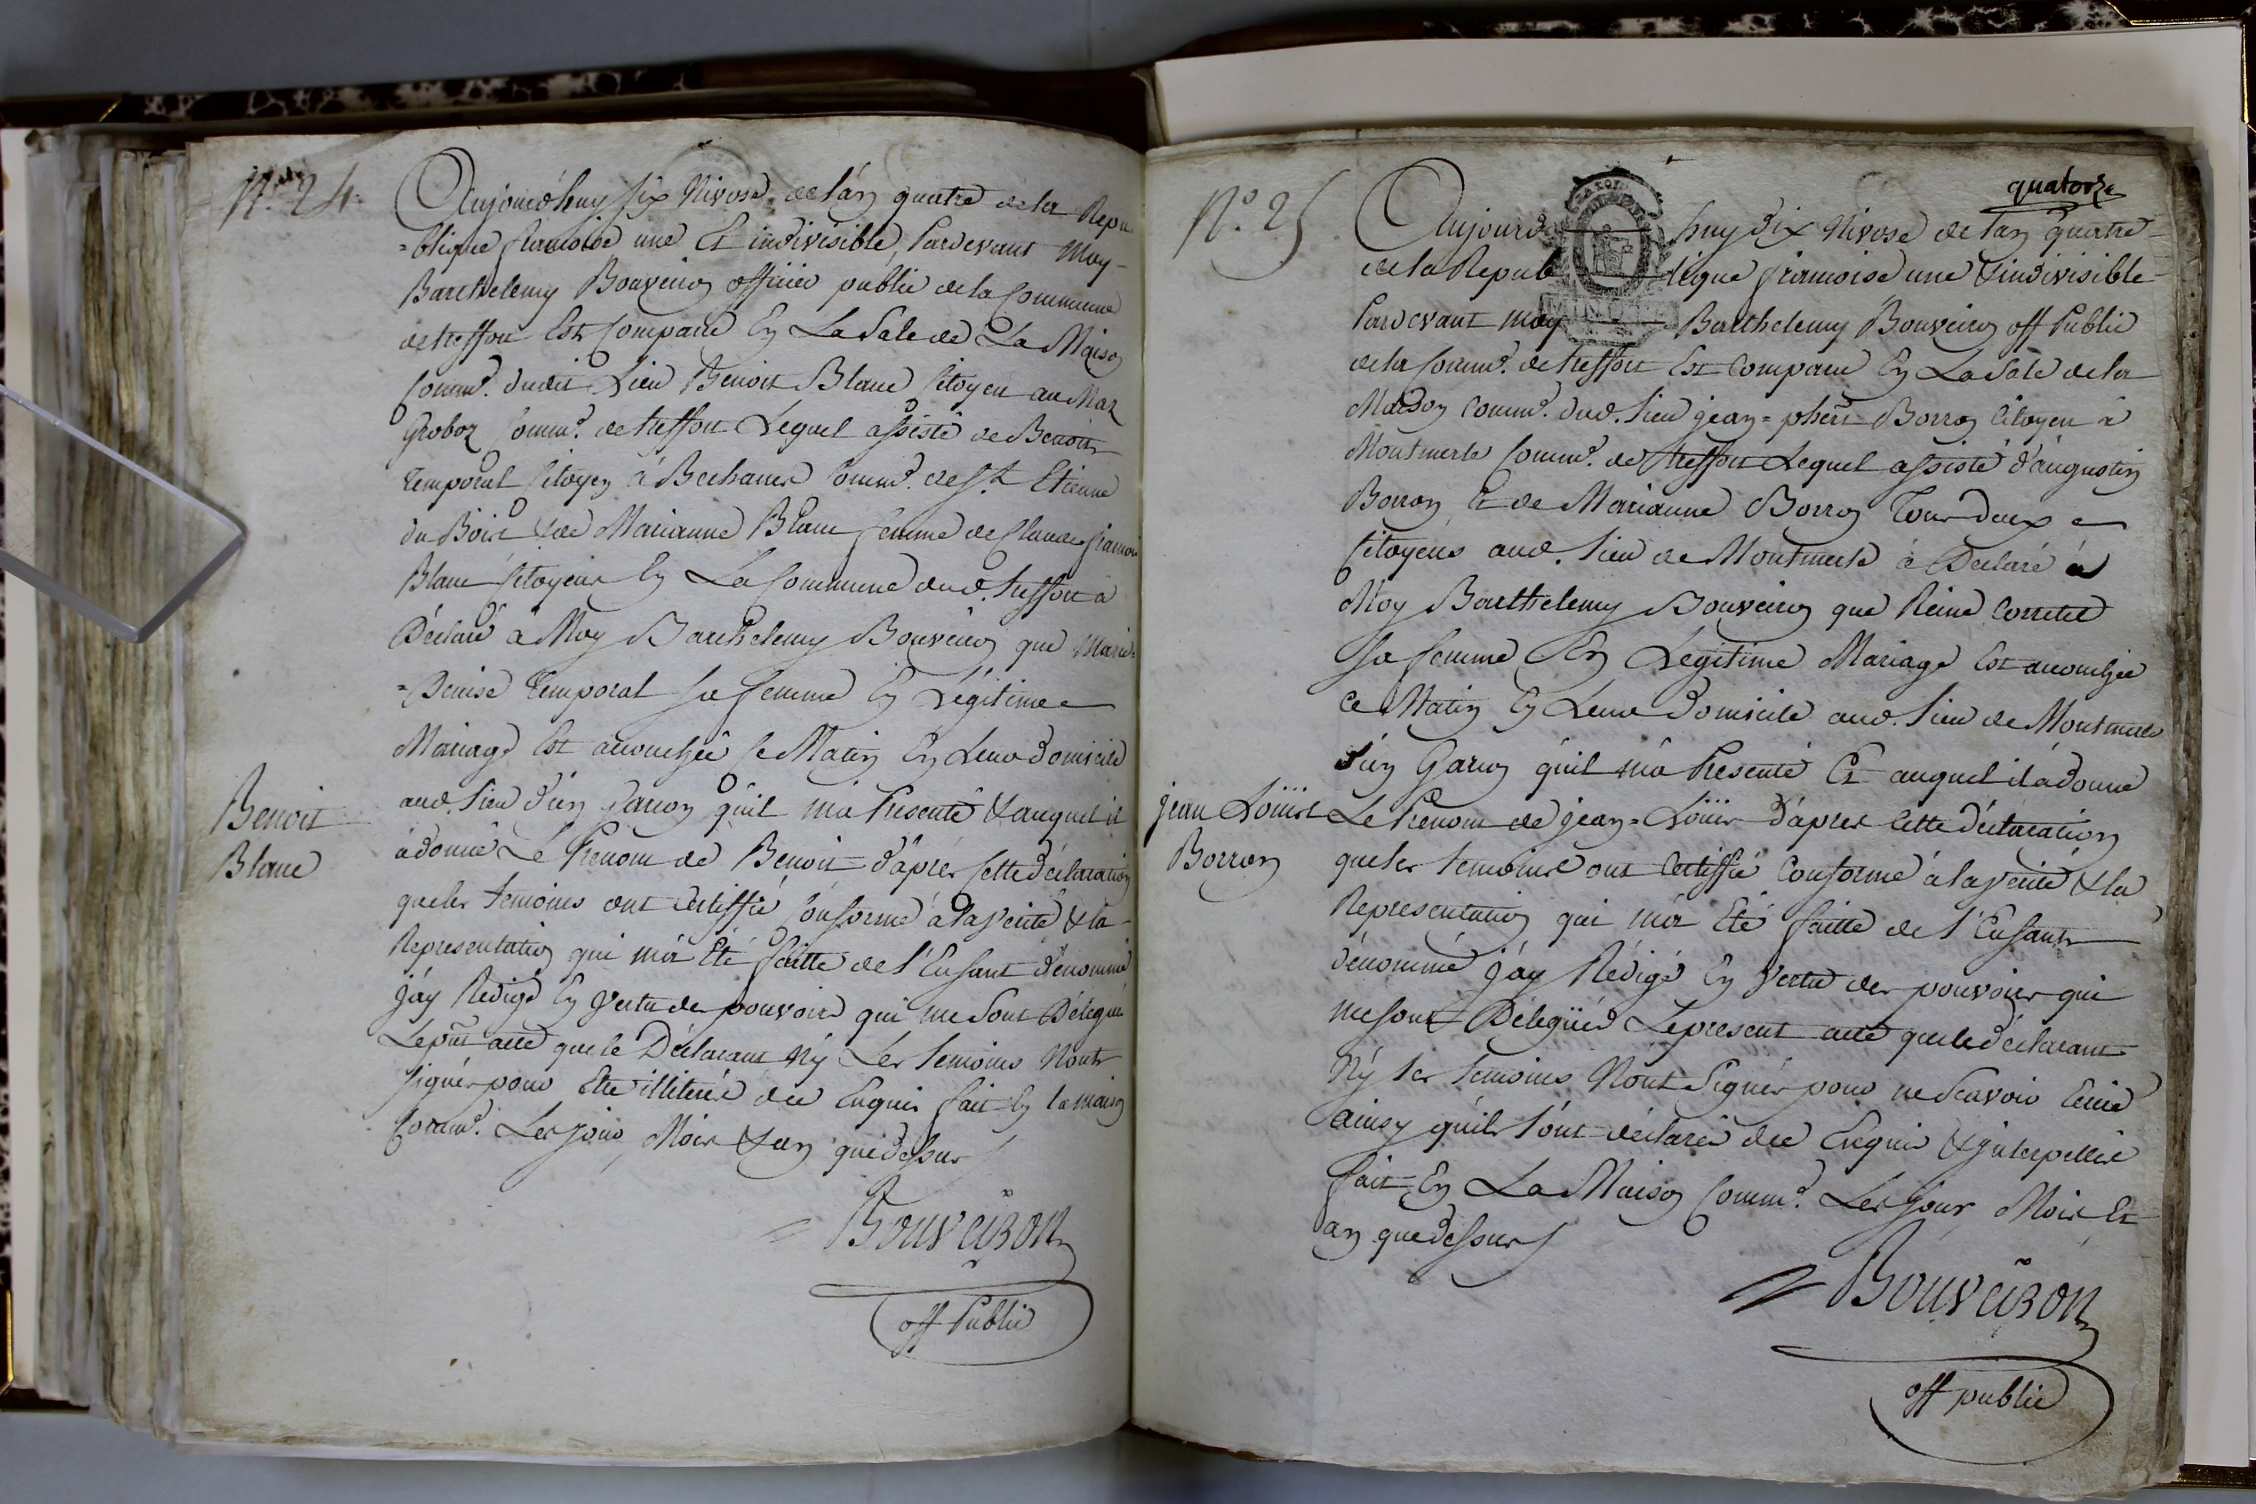 N.° 24.
Aujourd'huy six Nivose de l'an quatre de la Repu
=blique francoise une Et indivisible, Pardevant Moy
Barthelemy Bouveiron officier public de la Commune
de treffort Est Comparu En La Sale de La Maison
Comm.e dudit Lieu Benoit Blanc Citoyen au Maz
Groboz Comm.e de treffort Lequel assisté de Benoit
temporal Citoyen à Bechanes Comm.e de S.t Etienne
du Bois & de Marianne Blanc femme de Claude francois
Blanc Citoyens En La Commune dud. treffort a
Déclaré à Moy Barthelemy Bouveiron que Marie=
=Denise temporal sa femme En Légitime
Mariage Est accouchée ce Matin En Leur domicile
aud. Lieu d'un Garcon qu'il m'a Presenté & auquel il
a donné Le Prenom de Benoit d'après cette déclaration
que les temoins ont Certiffié Conforme à la Verité & la
Representation qui m'a Eté faitte de l'Enfant dénommé
j'ay Redigé En Vertu des pouvoirs qui me sont Délegués
Le pnt acte que le Déclarant Ny Les temoins N'ont
signés pour Etre illiterés de ce Enquis fait En la maison
Comm.e Les jour, Mois & an que dessus
Benoit
Blanc
Bouveiron
off Public
quatorze
N.° 25
Aujourd huy dix Nivose de l'an quatre
de la Repub lique francoise une & indivisible
Pardevant moy Barthelemy Bouveiron off Public
de la Comm.e de treffort Est Comparu En La Sale de la
Maison Comm.e dud. Lieu jean=phert Borron Citoyen à
Montmerle Comm.e de treffort Lequel assisté d'augustin
Borron Et de Marianne Borron tous deux
Citoyens aud. Lieu de Montmerle à Déclaré à
Moy Barthelemy Bouveiron que Reine Corretet
sa femme En Légitime Mariage Est accouchée
ce Matin En Leur domicile aud. Lieu de Montmerle
d'un Garcon qu'il m'a Presenté Et auquel il a donné
Le Prenom de jean=Loüis d'après cette déclaration
que les temoins ont Certiffié Conforme à la Verité & la
Representation qui m'a Eté faitte de l'Enfant
dénommé j'ay Rédigé En Vertu des pouvoirs qui
me sont Délegüés Le present acte que le déclarant
Ny Les temoins N'ont Signés pour ne Scavoir Ecrire
ainsy qu'ils l'ont déclaré de ce Enquis & jnterpellés
fait En La Maison Comm.e Les jour Mois Et
an que dessus
jean Loüis
Borron
Bouveiron
off public